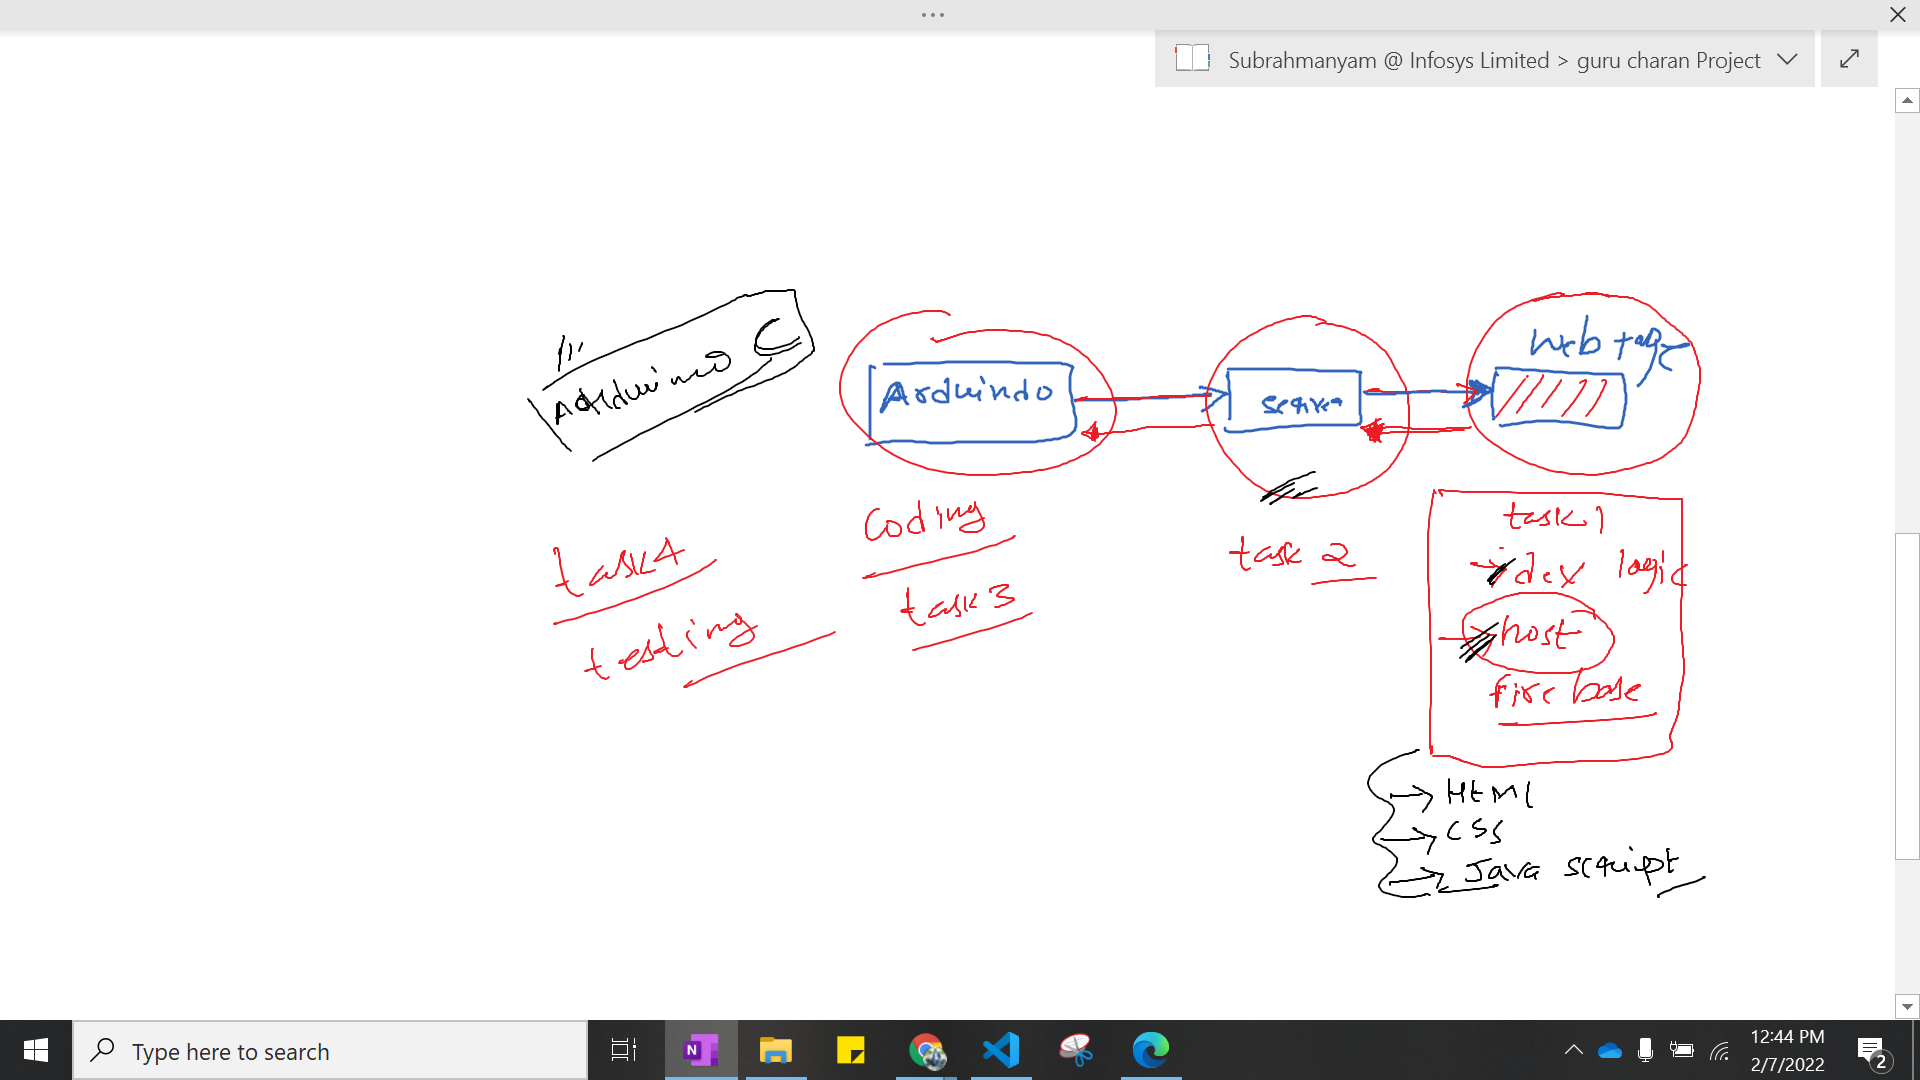 Subrahmanyam @ Infosys Limited > guru charan Project
Arduino C
Arduindo
server
Web page
coding
task 3
task4
testing
task 2
task 1
dev logic
host
fire base
HTML
CSS
Java script
Type here to search
12:44 PM
2/7/2022
2